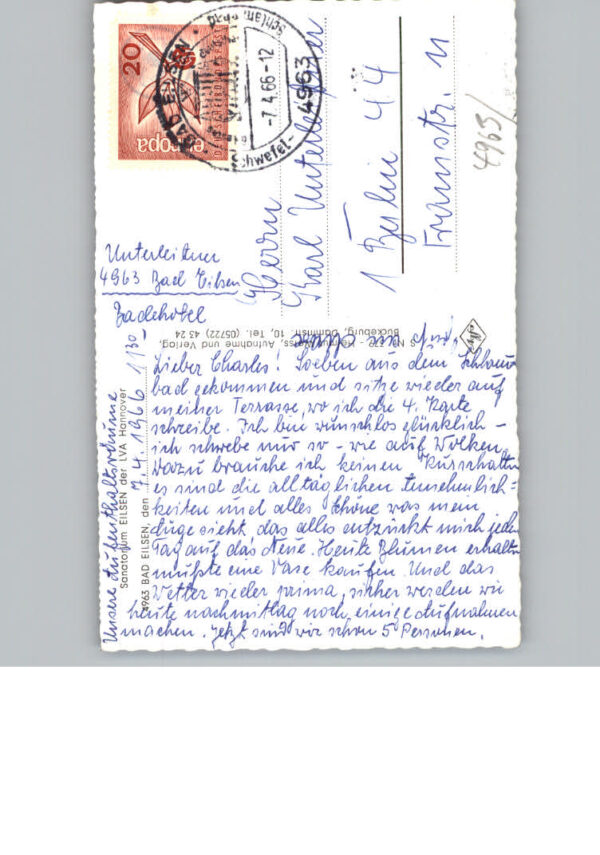 20
europa
DEUTSCHE BUNDESPOST
BAD EILSEN
Schlammbad
Schwefel-
-7.4.66-12
4963
Herrn
Karl Unterleitner
1 Berlin 44
4963/
Unterleitner
4963 Bad Eilsen
Badehotel
Bückeburg, Dammstr. 10, Tel. (05722) 43 24
Aufnahme und Verlag:
Unsere Aufenthaltsräume
Sanatorium EILSEN der LVA Hannover
4963 BAD EILSEN, den 7.4.1966 11 30
Lieber Charles! Soeben aus dem Schlamm
bad gekommen und sitze wieder auf
meiner Terrasse, wo ich die 4. Karte
schreibe. Ich bin wunschlos glücklich –
ich schwebe nur so – wie auf Wolken
dazu brauche ich keinen Kurschatten
es sind die alltäglichen Annehmlich=
keiten und alles Schöne was mein
Auge sieht, das alles entzückt mich jeden
Tag auf das Neue. Heute Blumen erhalten
mußte eine Vase kaufen. Und das
Wetter wieder prima, sicher werden wir
heute nachmittag noch einige Aufnahmen
machen. Jetzt sind wir schon 5 Personen.